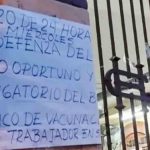 20 DE 24 HORA
MIERCOLES
DEFENZA DEL
O OPORTUNO Y
GATORIO DEL B
NCO DE VACUNAC
TRABAJADOR EN S